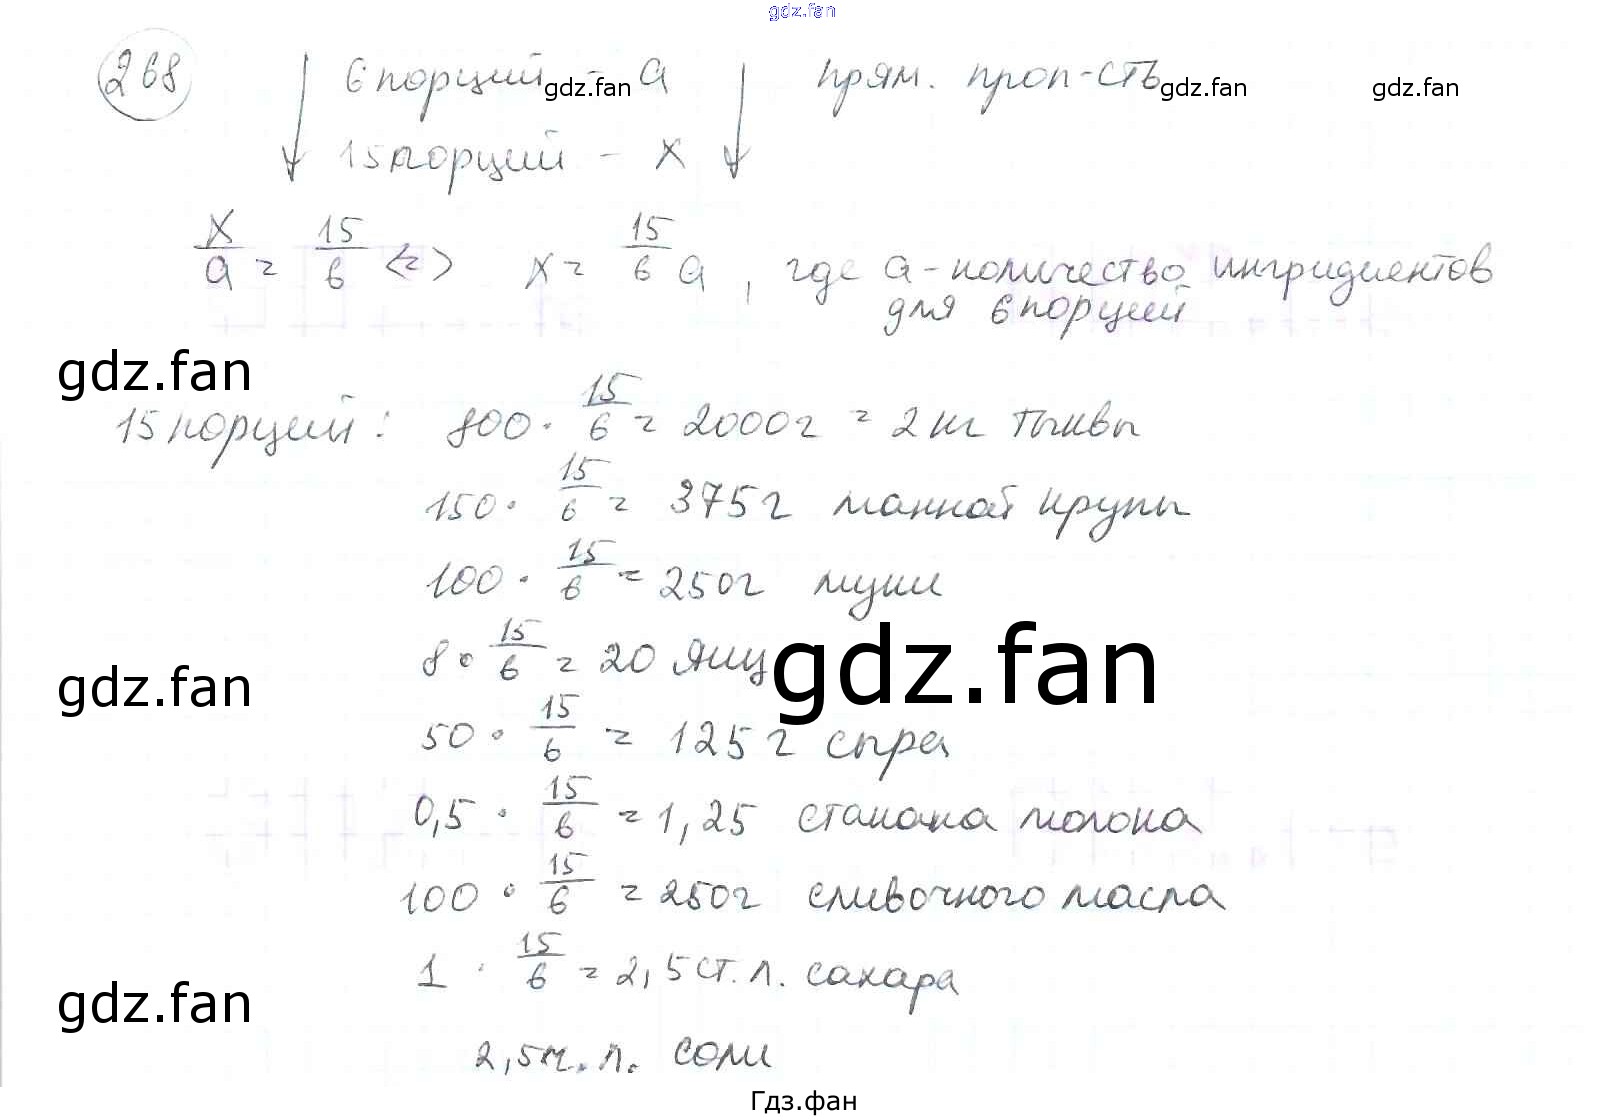 gdz.fan
268 6 порций - a прям. проп-сть
gdz.fan gdz.fan gdz.fan
15 порций - x
x/a = 15/6 <=> x = 15/6 a, где a - количество ингридиентов
для 6 порций
gdz.fan
15 порций: 800 · 15/6 = 2000г = 2 кг тыквы
150 · 15/6 = 375г манной крупы
100 · 15/6 = 250г муки
8 · 15/6 = 20 яиц
gdz.fan
gdz.fan
50 · 15/6 = 125 г сыра
0,5 · 15/6 = 1,25 стакана молока
100 · 15/6 = 250г сливочного масла
1 · 15/6 = 2,5 ст. л. сахара
gdz.fan
2,5 ч. л. соли
Гдз.фан